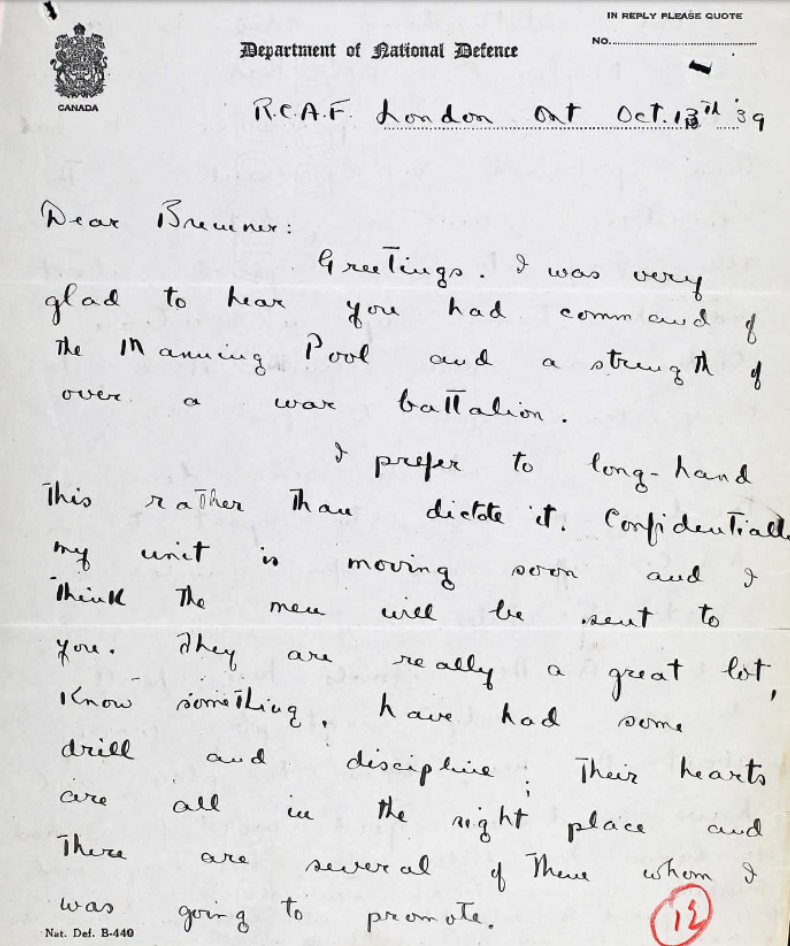 IN REPLY PLEASE QUOTE
No.
Department of National Defence
CANADA
R.C.A.F. London Ont Oct. 13th '39
Dear Bremner:
Greetings. I was very
glad to hear you had command of
the Manning Pool and a strength of
over a war battalion.
I prefer to long-hand
this rather than dictate it. Confidentiall
my unit is moving soon and I
think the men will be sent to
you. They are really a great lot,
know something, have had some
drill and discipline; their hearts
are all in the right place and
there are several of them whom I
was going to promote.
Nat. Def. B-440